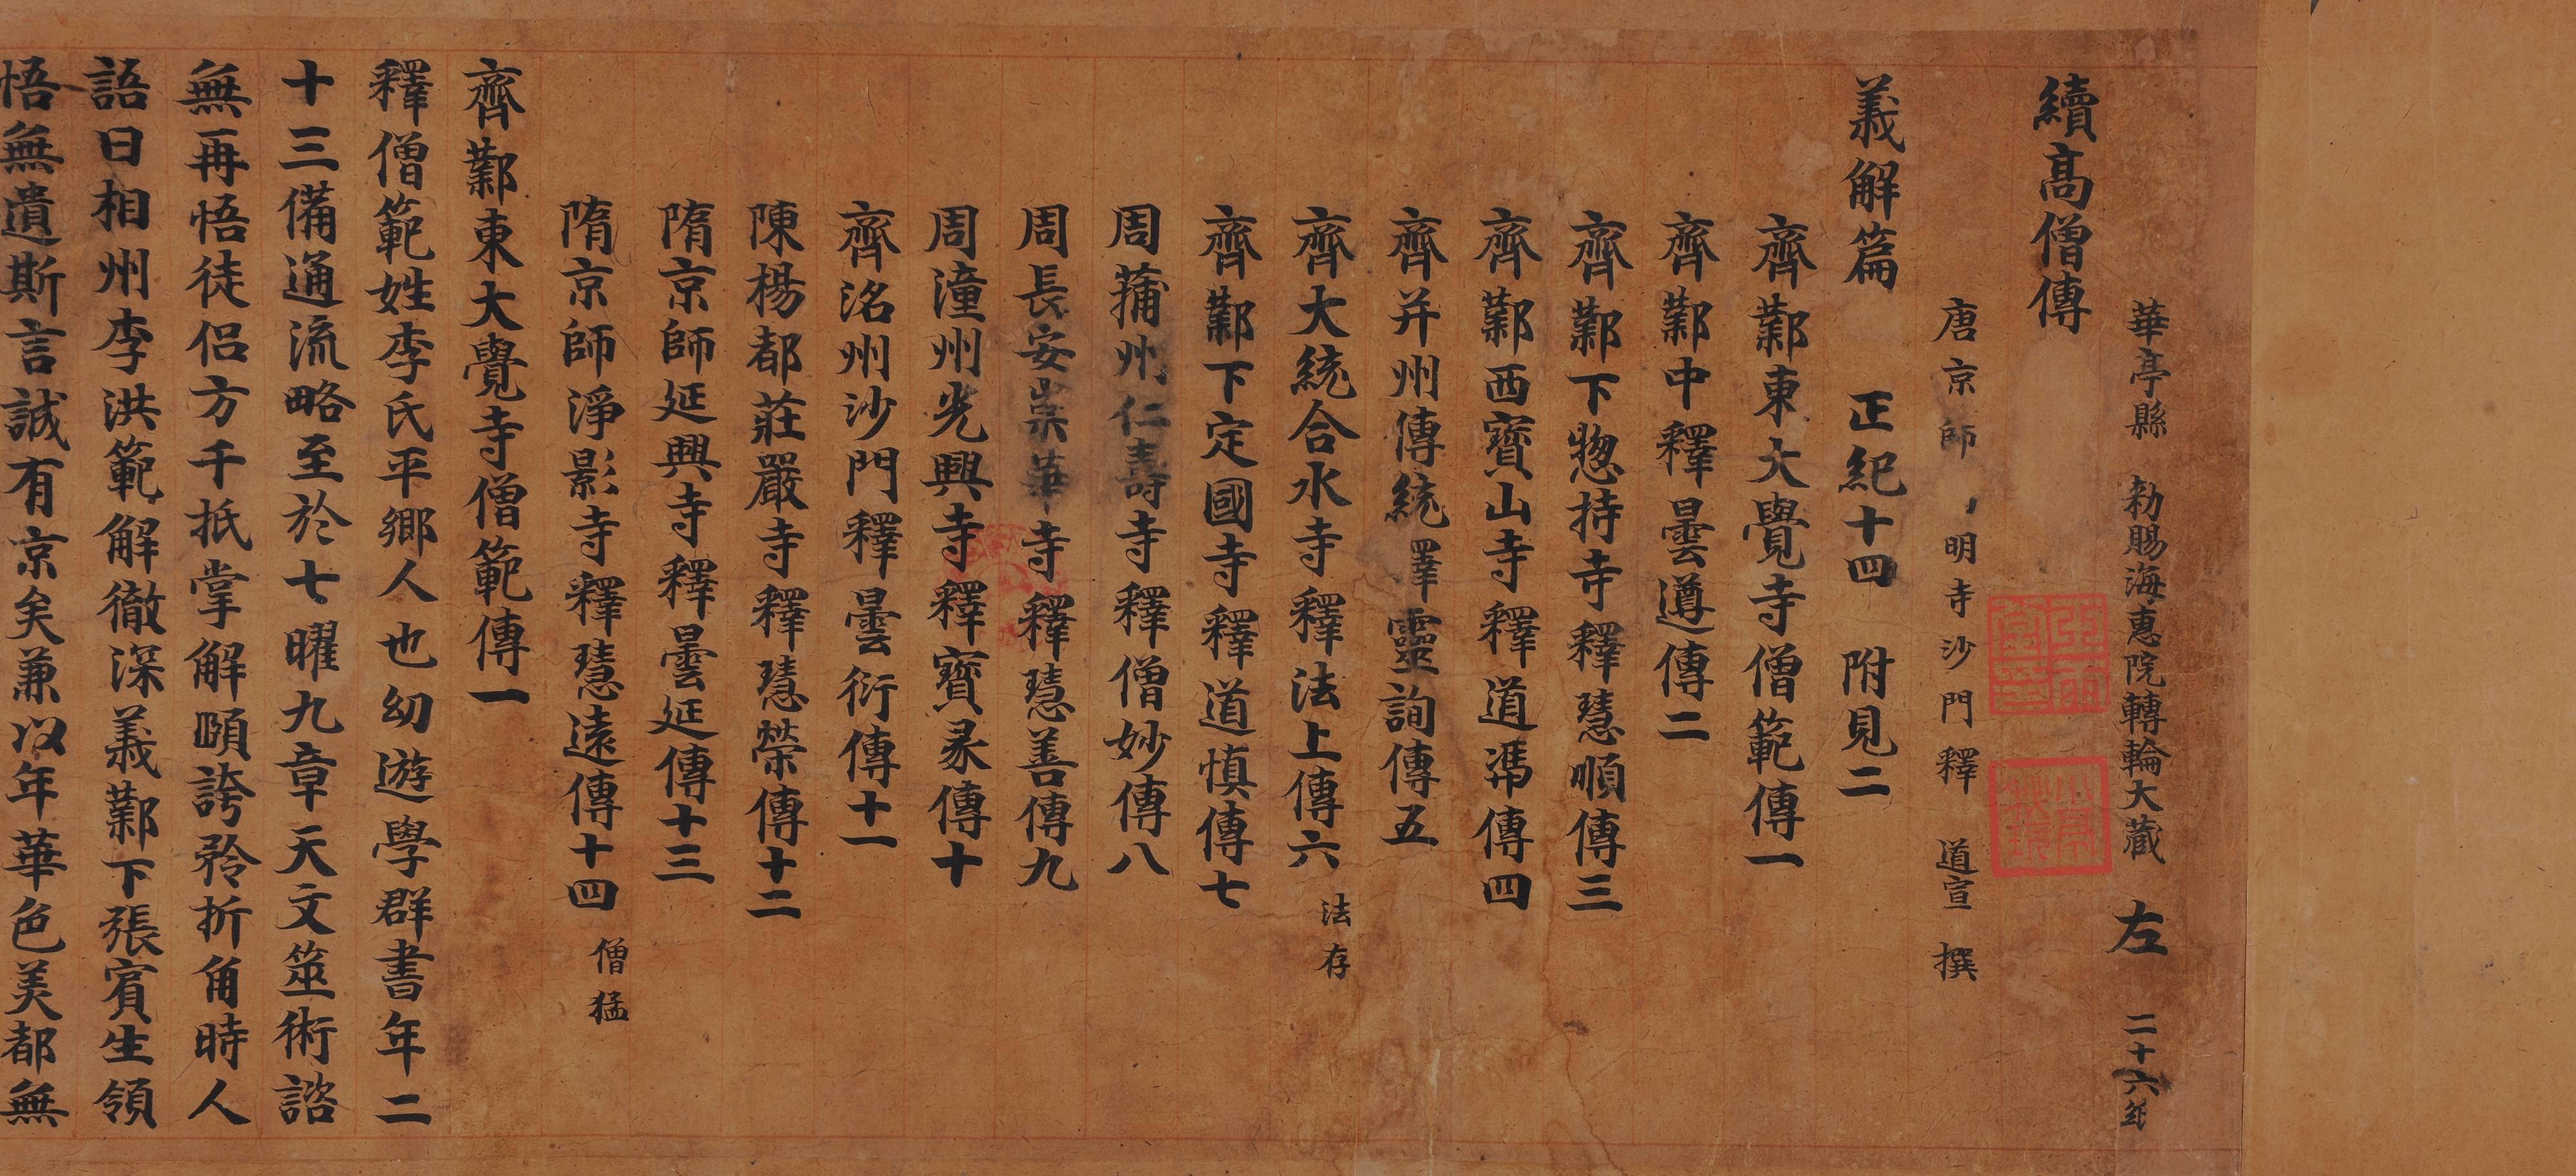 華亭縣 勑賜海惠院轉輪大藏 左 二十六紙
續高僧傳
唐京師 明寺沙門釋 道宣 撰
義解篇 正紀十四 附見二
齊鄴東大覺寺僧範傳一
齊鄴中釋曇遵傳二
齊鄴下惣持寺釋慧順傳三
齊鄴西寶山寺釋道慿傳四
齊并州傳統釋靈詢傳五
齊大統合水寺釋法上傳六 法存
齊鄴下定國寺釋道慎傳七
周蒲州仁壽寺釋僧妙傳八
周長安崇華寺釋慧善傳九
周潼州光興寺釋寶彖傳十
齊洺州沙門釋曇衍傳十一
陳楊都莊嚴寺釋慧榮傳十二
隋京師延興寺釋曇延傳十三
隋京師淨影寺釋慧遠傳十四 僧猛
齊鄴東大覺寺僧範傳一
釋僧範姓李氏平鄉人也幼遊學群書年二
十三備通流略至於七曜九章天文筮術諮
無再悟徒侶方千抵掌解頤誇矜折角時人
語曰相州李洪範解徹深義鄴下張賓生領
悟無遺斯言誠有京矣兼以年華色美都無